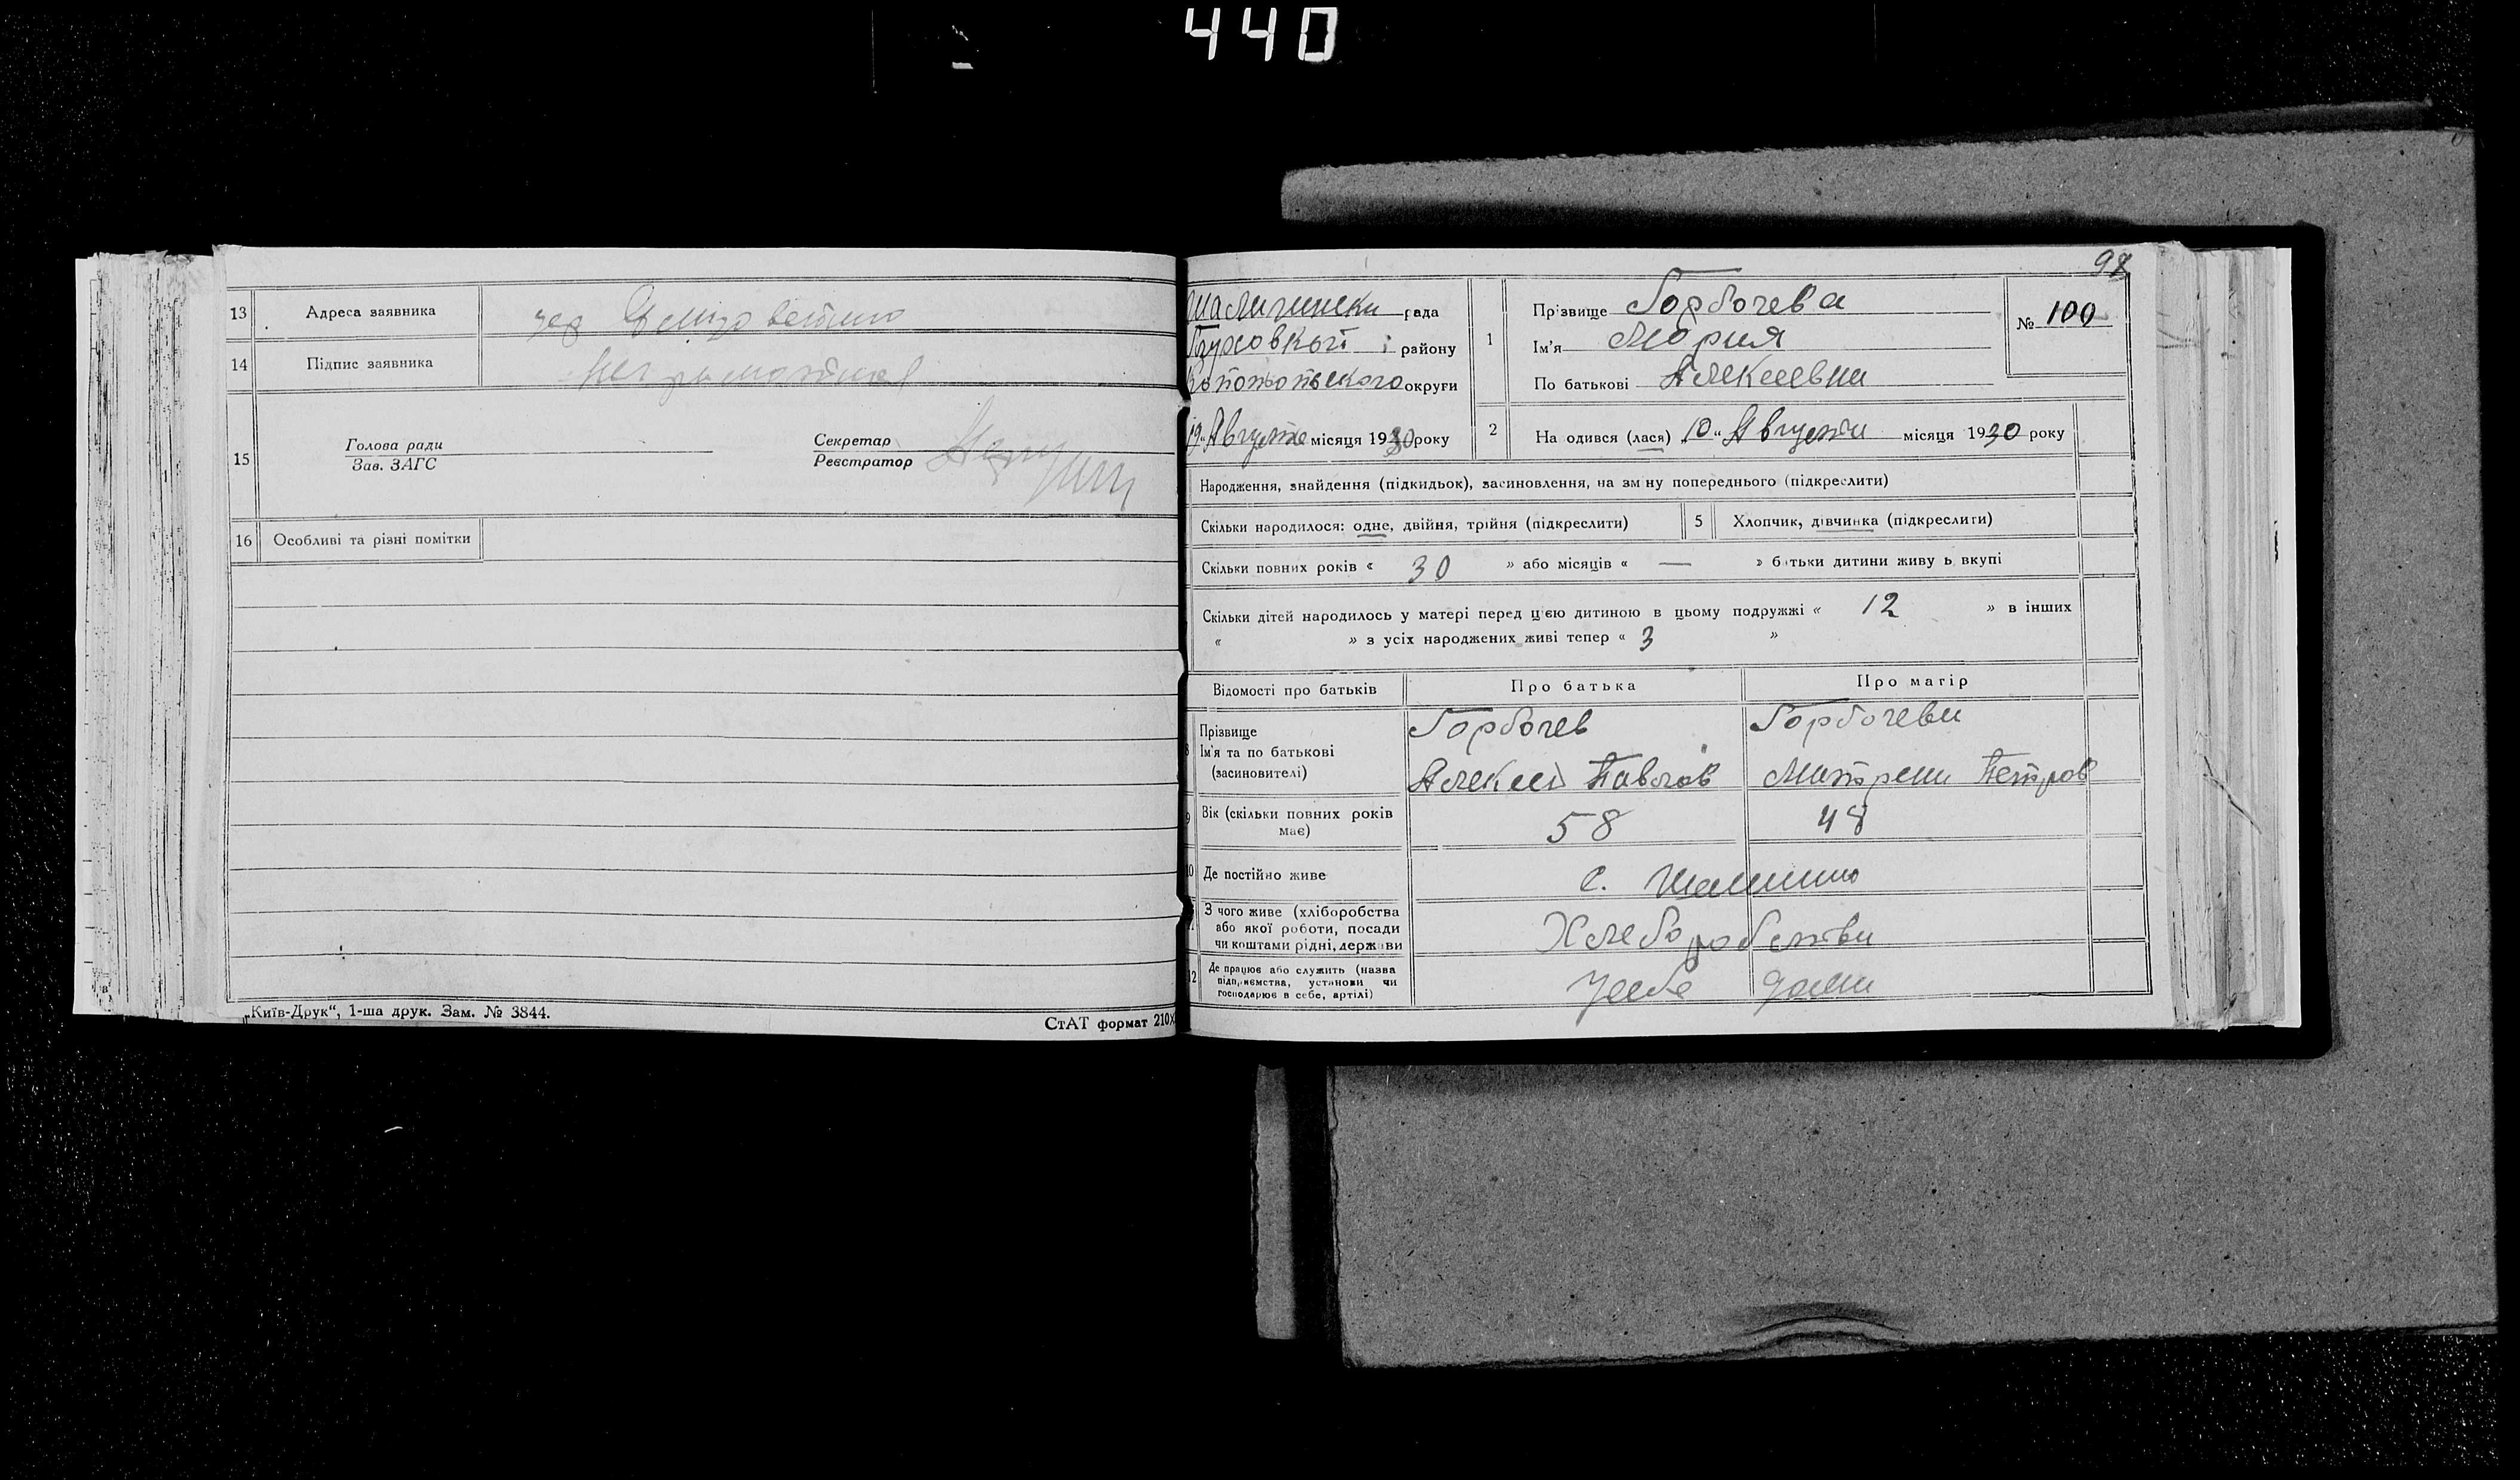 440
13 Адреса заявника
14 Підпис заявника неграмотная
15 Голова ради
Зав. ЗАГС
Секретар
Реєстратор
16 Особливі та різні помітки
„Київ-Друк“, 1-ша друк. Зам. № 3844.
СтАТ формат 210х
98
Шалигински рада
району
Конотопьского округи
19 „ Августа місяця 1930 року
1 Прізвище Горбочева
Ім'я Мория
По батькові Алексеевна
№ 100
2 На одився (лася) „ 10 “ Августа місяця 1930 року
Народження, знайдення (підкидьок), засиновлення, на зм ну попереднього (підкреслити)
Скільки народилося: одне, двійня, трійня (підкреслити) 5 Хлопчик, дівчинка (підкреслити)
Скільки повних років « 30 » або місяців « — » батьки дитини живу ь вкупі
Скільки дітей народилось у матері перед цією дитиною в цьому подружжі « 12 » в інших
« » з усіх народжених живі тепер « 3 »
Відомості про батьків Про батька Про матір
Прізвище Горбочев Горбочева
8 Ім'я та по батькові
(засиновителі) Алексей Павлов Матрена Петров
9 Вік (скільки повних років
має) 58 48
10 Де постійно живе с.
З чого живе (хліборобства
11 або якої роботи, посади Хлеборобства
чи коштами рідні, держави
12 Де працює або служить (назва
підприємства, установи чи
господарює в себе, артілі) Усебе дома